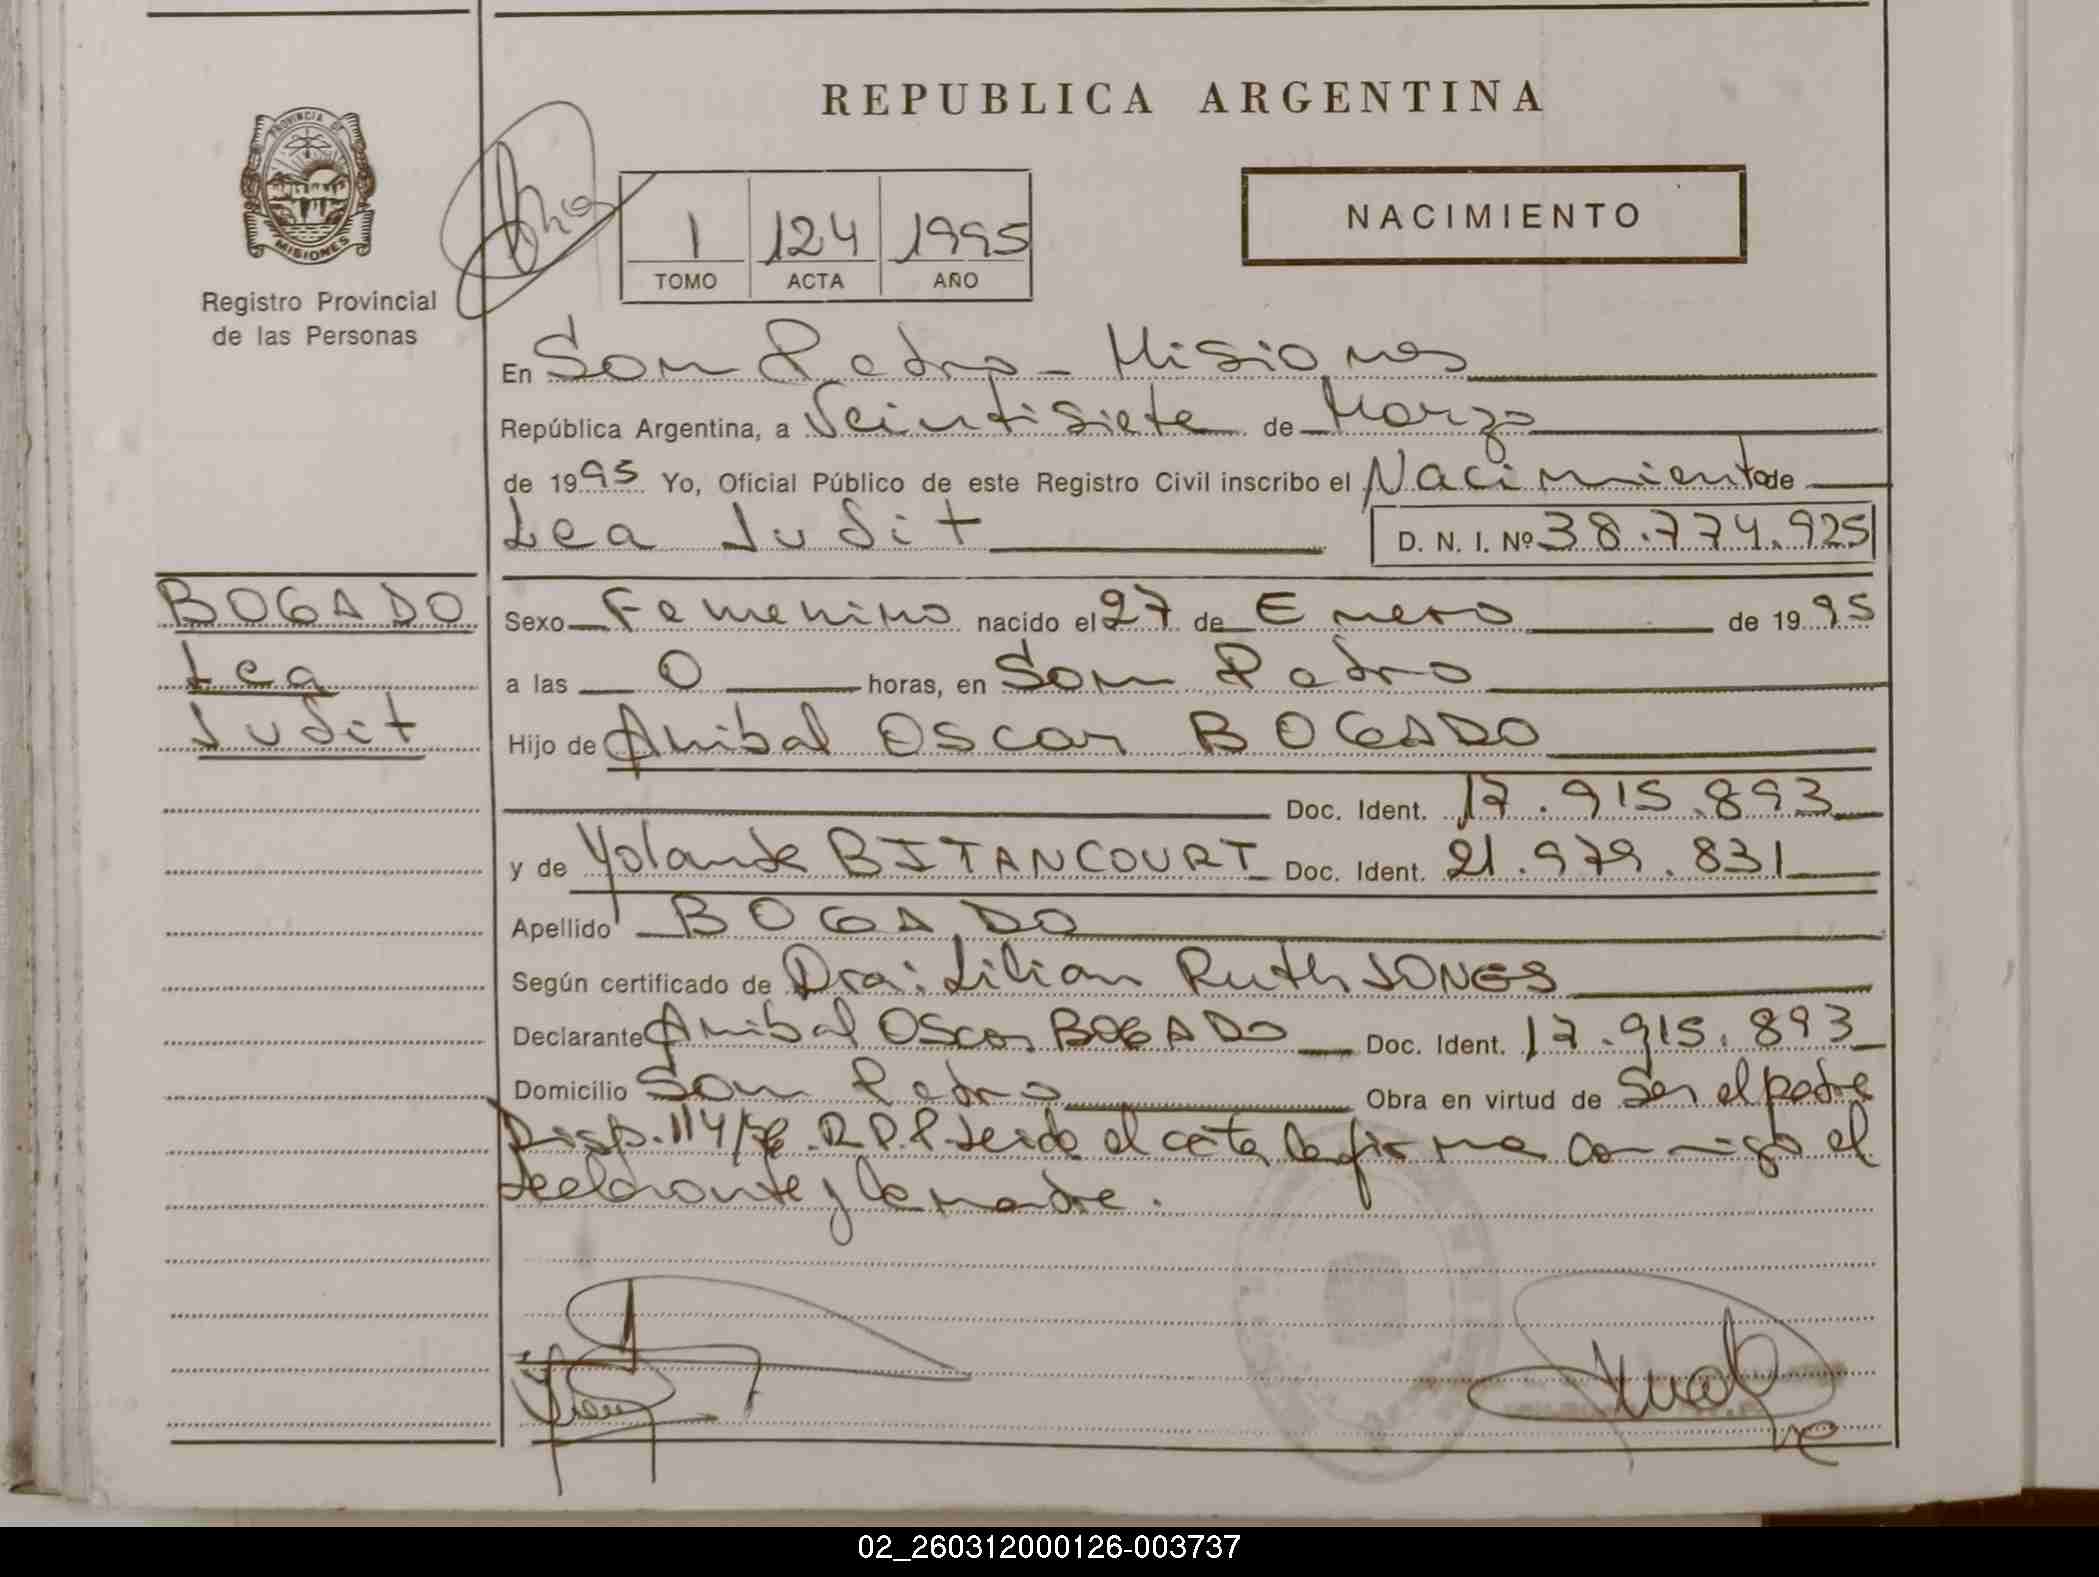 REPUBLICA ARGENTINA
PROVINCIA DE
MISIONES
Registro Provincial
de las Personas
1 124 1995
TOMO ACTA AÑO
NACIMIENTO
En San Pedro - Misiones
República Argentina, a Veintisiete de Marzo
de 1995 Yo, Oficial Público de este Registro Civil inscribo el Nacimiento de
Lea Judit D. N. I. Nº 38.774.925
BOGADO
Lea
Judit
Sexo Femenino nacido el 27 de Enero de 1995
a las 0 horas, en San Pedro
Hijo de Anibal Oscar BOGADO
Doc. Ident. 17.915.893
y de Yolanda BITANCOURT Doc. Ident. 21.979.831
Apellido BOGADO
Según certificado de Dra: Lilian Ruth JONES
Declarante Anibal Oscar BOGADO Doc. Ident. 17.915.893
Domicilio San Pedro Obra en virtud de Ser el padre
Disp. 114/ R.P.P. Leida el acta la firma conmigo el
declarante y la madre.
02_260312000126-003737